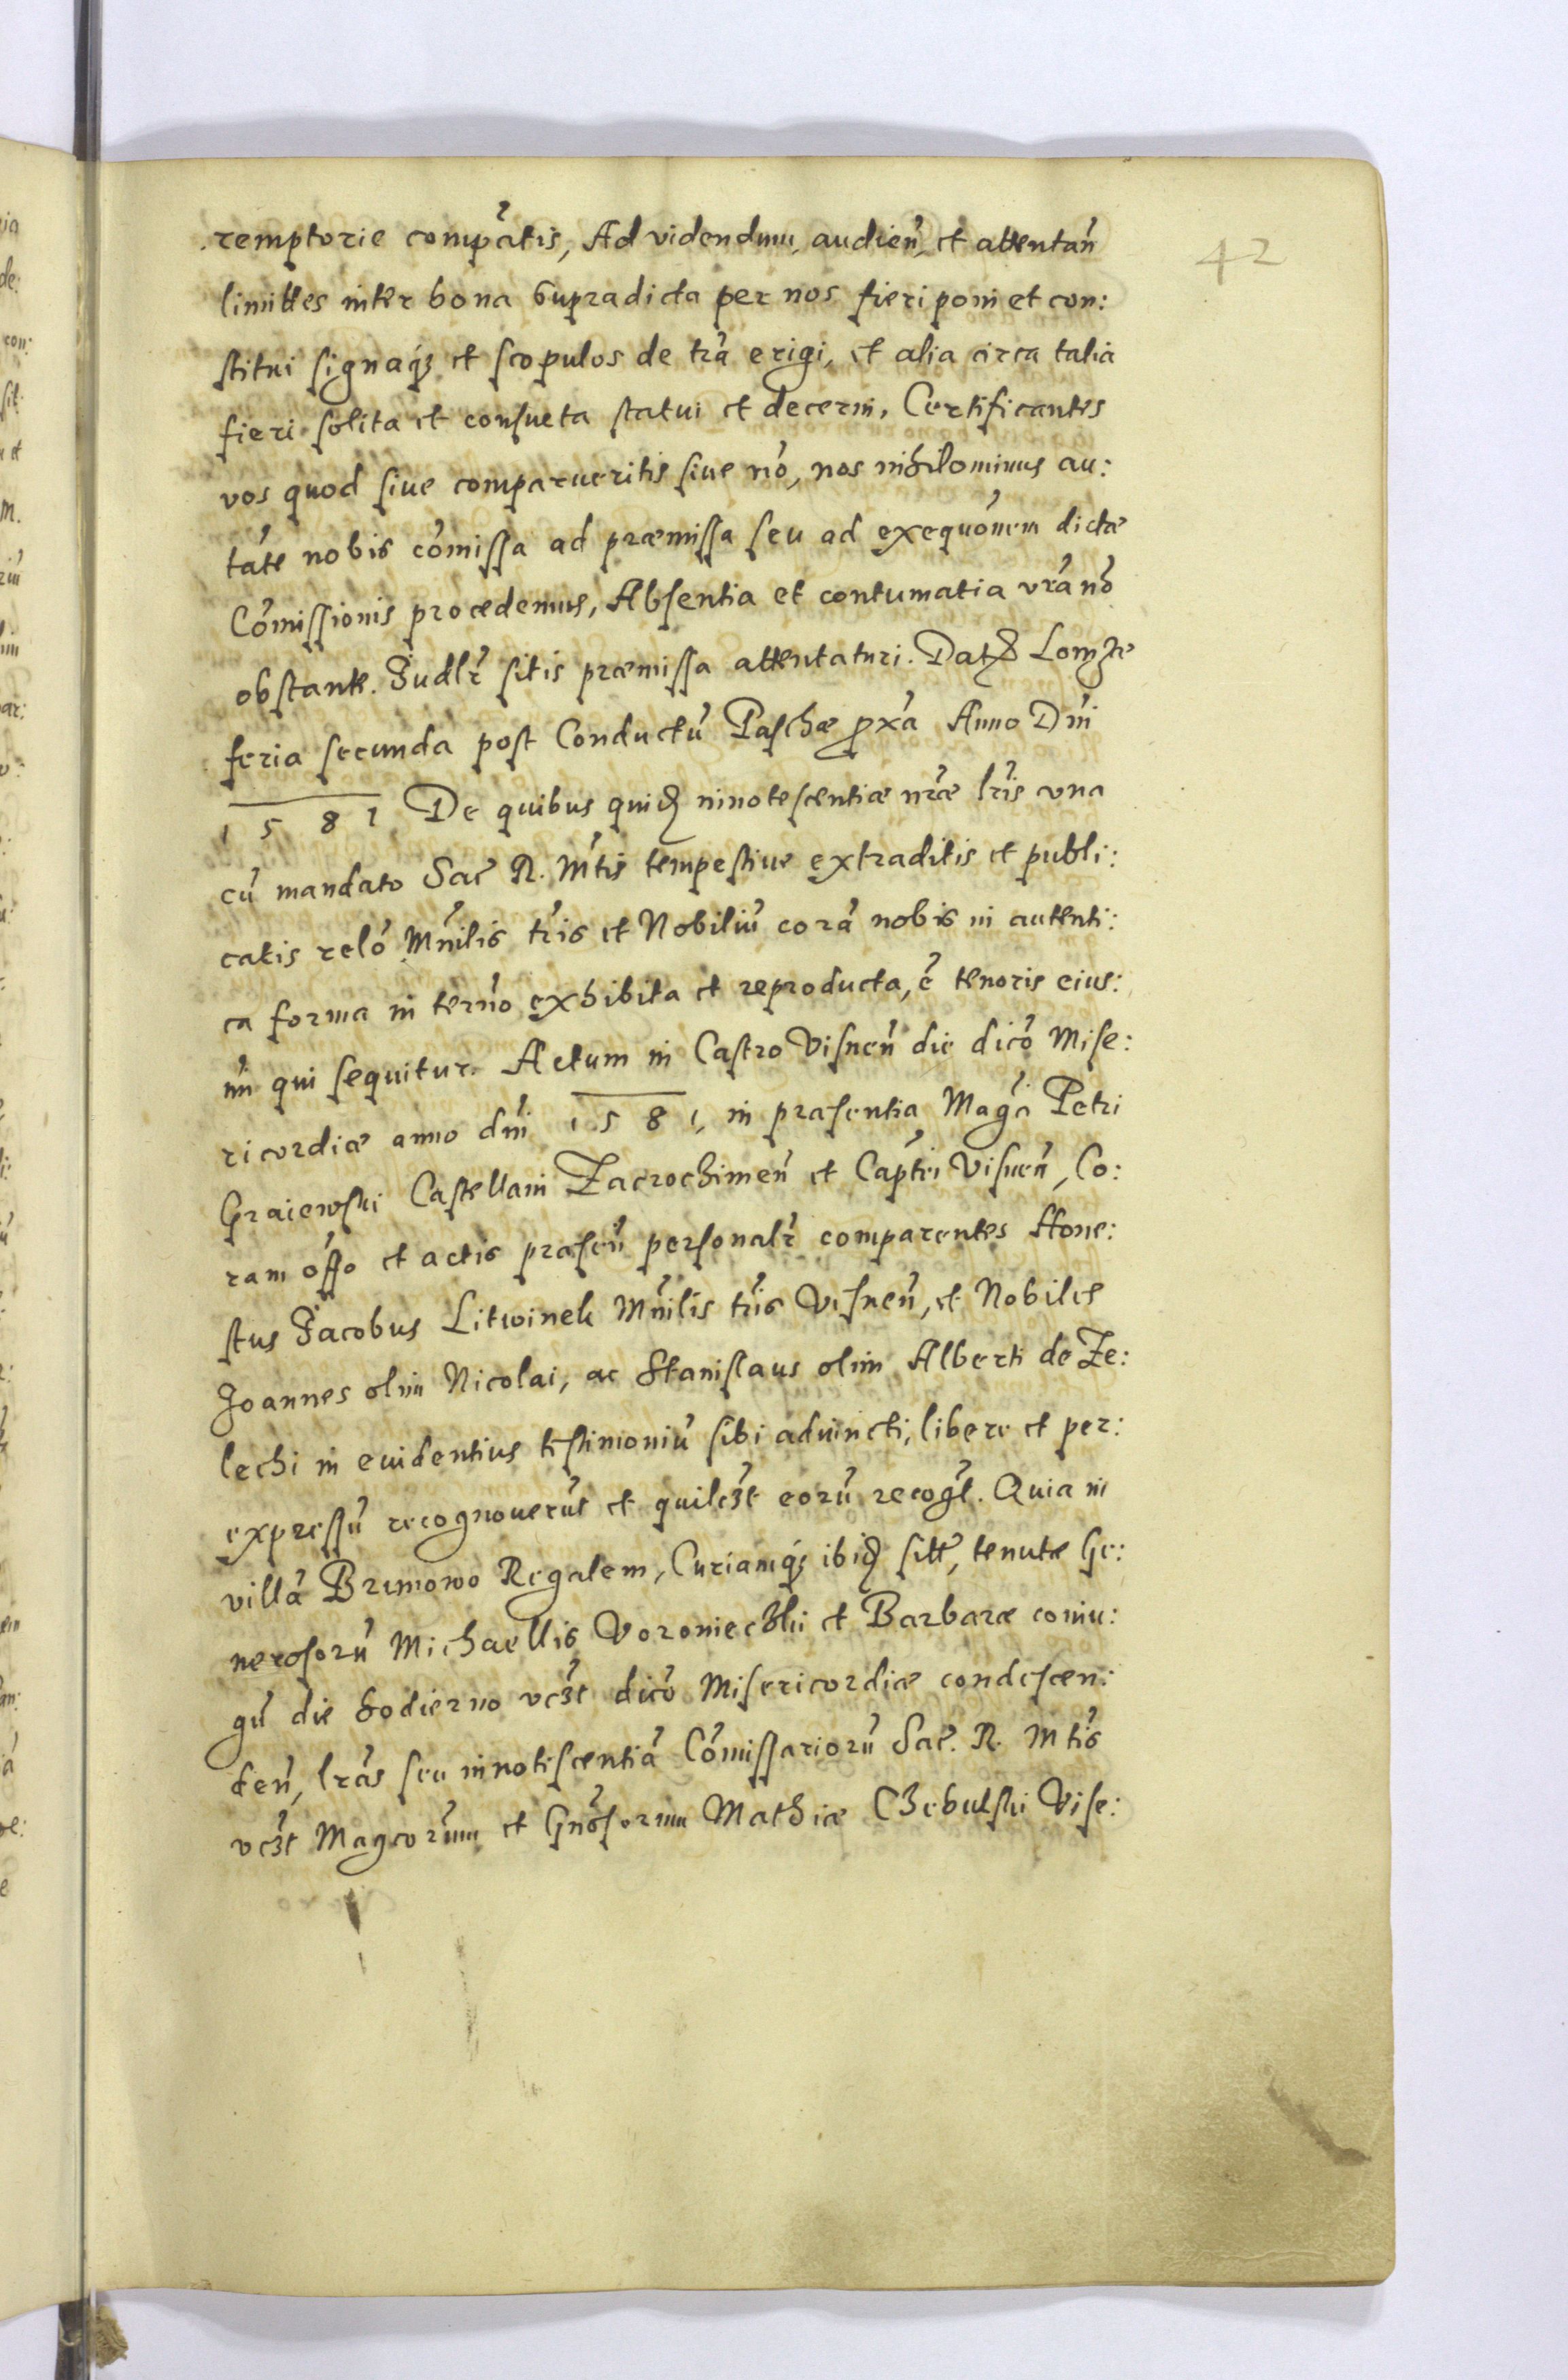 42
remptorie comparatis, Ad videndum, audien, et attentan
limittes inter bona supradicta per nos fieri poni et con:
stitui signaq et scopulos de tra erigi, et alia circa talia
fieri solita et consueta statui et decerni, Certificantes
vos quod siue comparueritis siue no, nos nihilominus au:
tate nobis comissa ad præmissa seu ad exequonem dictæ
Comissionis procedemus, Absentia et contumatia vra no
obstante. Judlr sitis præmissa attentaturi. Dat Lomzæ
feria secunda post Conductu Paschæ pxa Anno Dni
1581 De quibus quid innotescentiæ nræ lris vna
cu mandato Sac R. Mtis tempestiue extraditis et publi:
catis relo Mnilis tris et Nobiliu cora nobis in autenti:
ca forma in termo exhibita et reproducta, e tenoris eius:
m qui sequitur. Actum in Castro Visnen die dico Mise:
ricordiæ anno dni 1581, in præsentia Magci Petri
Graiewski Castellani Zacrochimen et Captei Visnen, Co:
ram offo et actis præsen personalr comparentes Hone:
stus Jacobus Litwinek Mnilis tris Visnen, et Nobiles
Joannes olim Nicolai, ac Stanislaus olim Alberti de Ze:
lechi in euidentius testimoniu sibi adiuncti, libere et per:
expressu recognouerut et quilizt eoru recogt. Quia in
villa Brzmowo Regalem, Curiamq ibid sitt, tenutæ Ge:
nerosoru Michaellis Voronieczki et Barbaræ coniu:
gu die hodierno vczt dico Misericordiæ condescen:
den, lras seu innotiscentia Comissarioru Sac. R. Mtis
vczt Magcorum et Gnosorum Mathiæ Chebulski Vise: